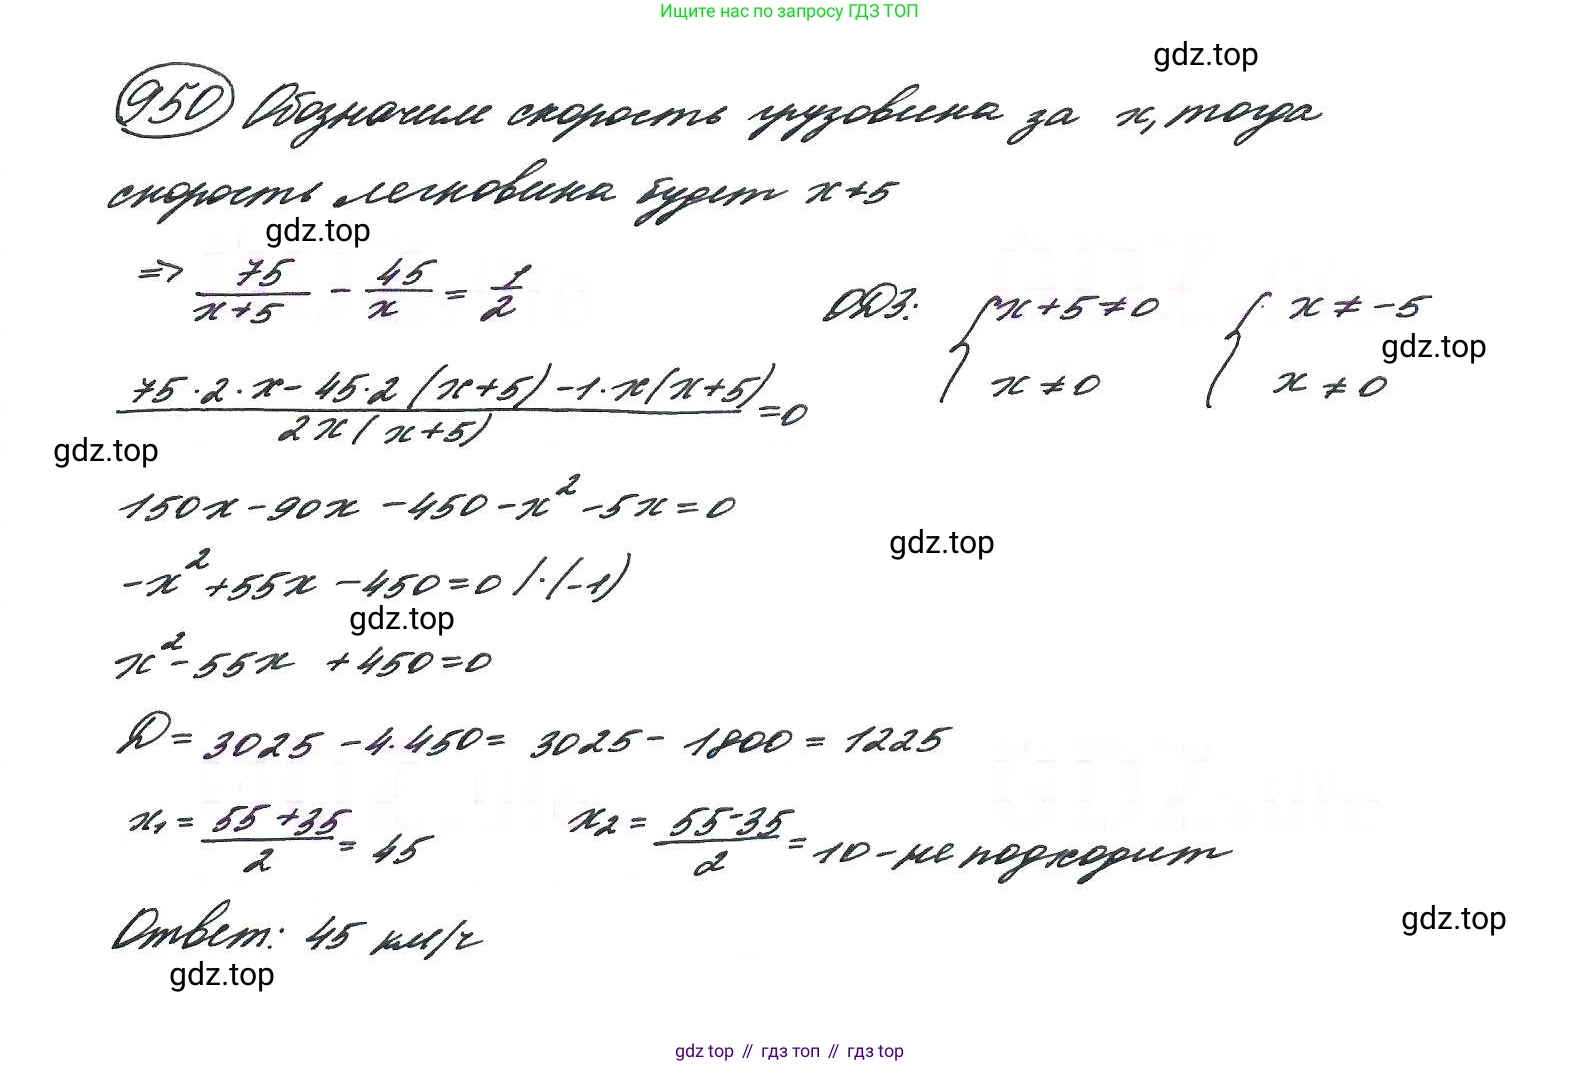 Ищите нас по запросу ГДЗ ТОП
gdz.top
950 Обозначим скорость грузовика за x, тогда
скорость легковика будет x+5
gdz.top
=> 75/(x+5) - 45/x = 1/2
ОДЗ: { x+5≠0 { x ≠ -5
x ≠ 0 x ≠ 0
gdz.top
(75·2·x - 45·2(x+5) - 1·x(x+5))/(2x(x+5)) = 0
gdz.top
150x - 90x - 450 - x² - 5x = 0
gdz.top
-x² + 55x - 450 = 0 /·(-1)
gdz.top
x² - 55x + 450 = 0
D = 3025 - 4·450 = 3025 - 1800 = 1225
x₁ = (55+35)/2 = 45 x₂ = (55-35)/2 = 10 - не подходит
Ответ: 45 км/ч
gdz.top
gdz.top
gdz top // гдз топ // гдз top